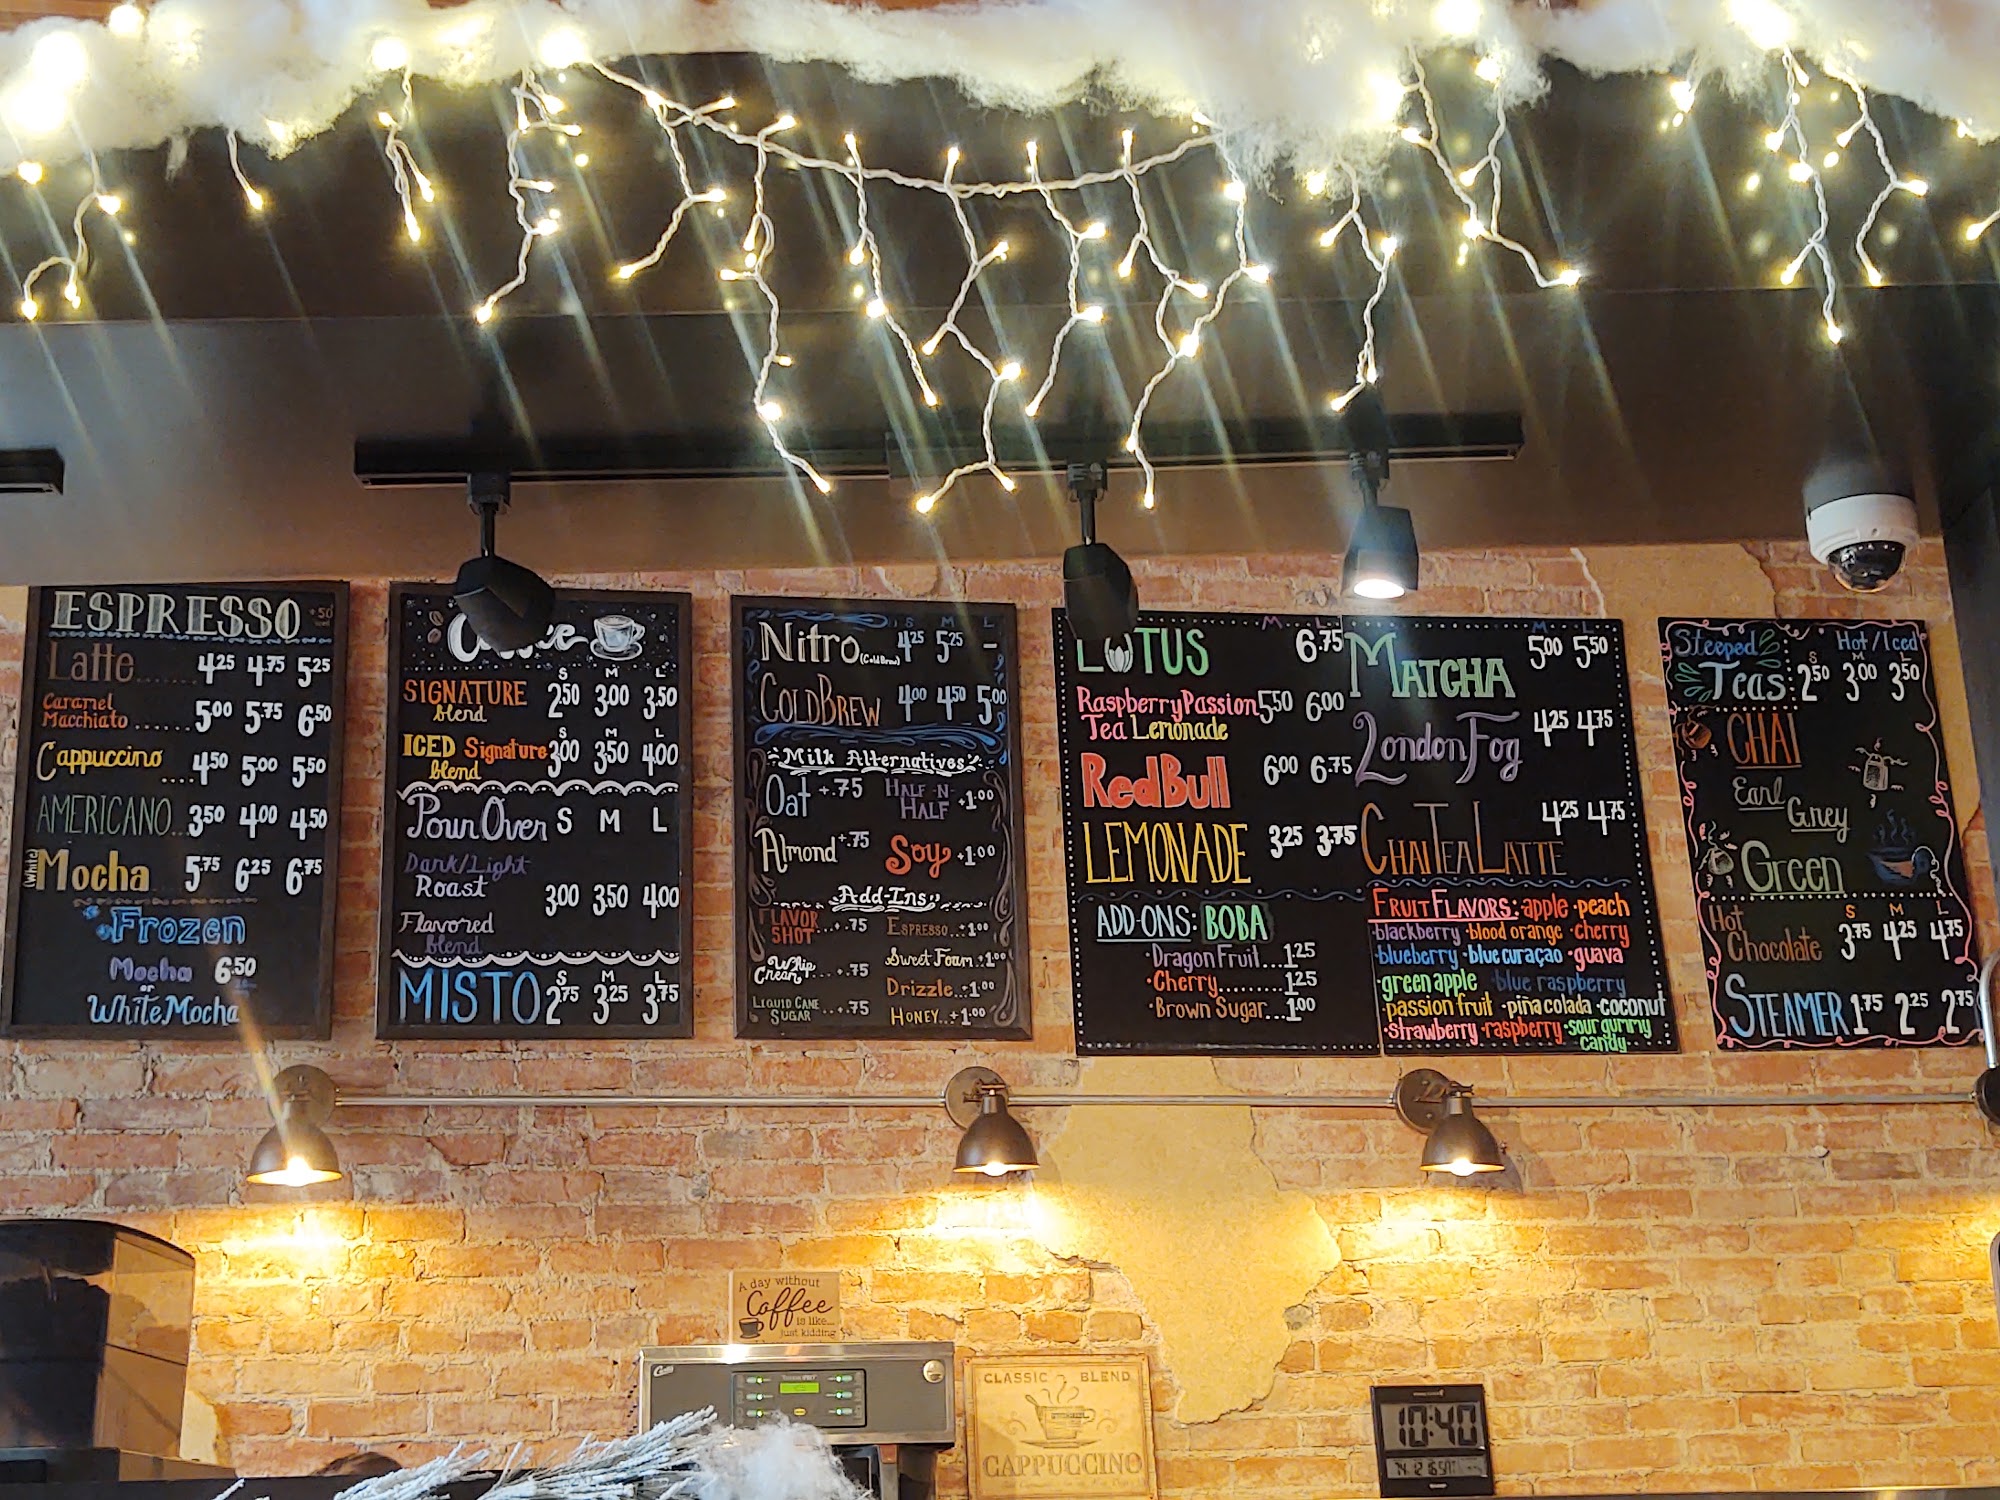 ESPRESSO +50
Latte....... 4.25 4.75 5.25
Caramel
Macchiato ...... 5.00 5.75 6.50
Cappuccino .... 4.50 5.00 5.50
AMERICANO... 3.50 4.00 4.50
(White) Mocha 5.75 6.25 6.75
Frozen
Mocha 6.50
or
White Mocha
Coffee
S M L
SIGNATURE 2.50 3.00 3.50
blend
S M L
ICED Signature 3.00 3.50 4.00
blend
Pour Over S M L
Dark/Light
Roast
3.00 3.50 4.00
Flavored
blend
S M L
MISTO 2.75 3.25 3.75
S M L
Nitro (Cold Brew) 4.25 5.25 –
COLDBREW 4.00 4.50 5.00
Milk Alternatives
Oat +.75 HALF-N-HALF +1.00
Almond +.75 Soy +1.00
Add-Ins
FLAVOR SHOT ...+.75 ESPRESSO...+1.00
Whip Cream...+.75 Sweet Foam.+1.00
LIQUID CANE SUGAR ...+.75 Drizzle..+1.00
HONEY..+1.00
M L
LOTUS 6.75
Raspberry Passion 5.50 6.00
Tea Lemonade
RedBull 6.00 6.75
LEMONADE 3.25 3.75
ADD-ONS: BOBA
·Dragon Fruit...1.25
·Cherry.........1.25
·Brown Sugar...1.00
M L
MATCHA 5.00 5.50
London Fog 4.25 4.75
CHAI TEA LATTE 4.25 4.75
FRUIT FLAVORS: apple ·peach
·blackberry ·blood orange ·cherry
·blueberry ·blue curaçao ·guava
·green apple ·blue raspberry
·passion fruit ·piña colada ·coconut
·strawberry ·raspberry ·sour gummy
candy
Steeped Hot/Iced
S M L
Teas: 2.50 3.00 3.50
CHAI
Earl
Grey
Green
S M L
Hot
Chocolate 3.75 4.25 4.75
STEAMER 1.75 2.25 2.75
A day without
Coffee
is like...
just kidding
CLASSIC BLEND
CAPPUCCINO
10:40